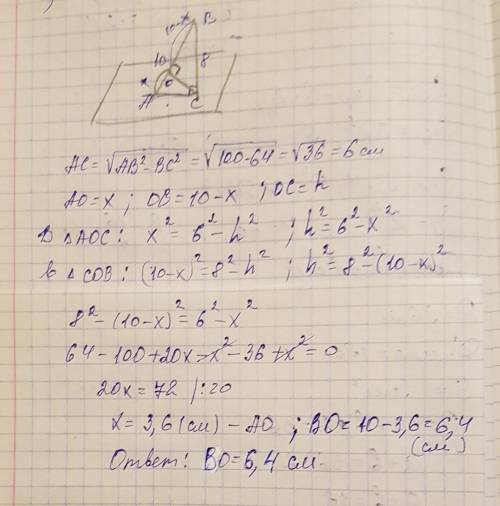 10-x B
10 8
x O
A C
AC = √AB²-BC² = √100-64 = √36 = 6 см
AO = x ; OB = 10-x ; OC = h
В △AOC: x² = 6² - h² ; h² = 6² - x²
в △COB: (10-x)² = 8² - h² ; h² = 8² - (10-x)²
8² - (10-x)² = 6² - x²
64 - 100 + 20x - x² - 36 + x² = 0
20x = 72 |:20
x = 3,6 (см) - AO ; BO = 10 - 3,6 = 6,4 (см)
Ответ: BO = 6,4 см.